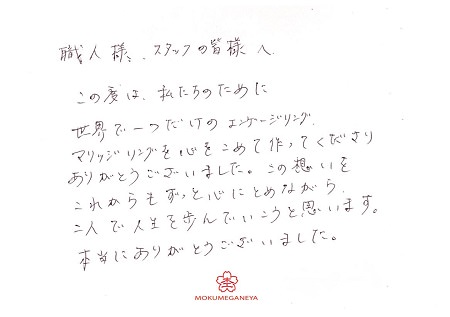 職人様、スタッフの皆様へ
この度は、私たちのために
世界で一つだけのエンゲージリング、
マリッジリングを心をこめて作ってくださり
ありがとうございました。この想いを
これからもずっと心にとめながら、
二人で人生を歩んでいこうと思います。
本当にありがとうございました。
MOKUMEGANEYA